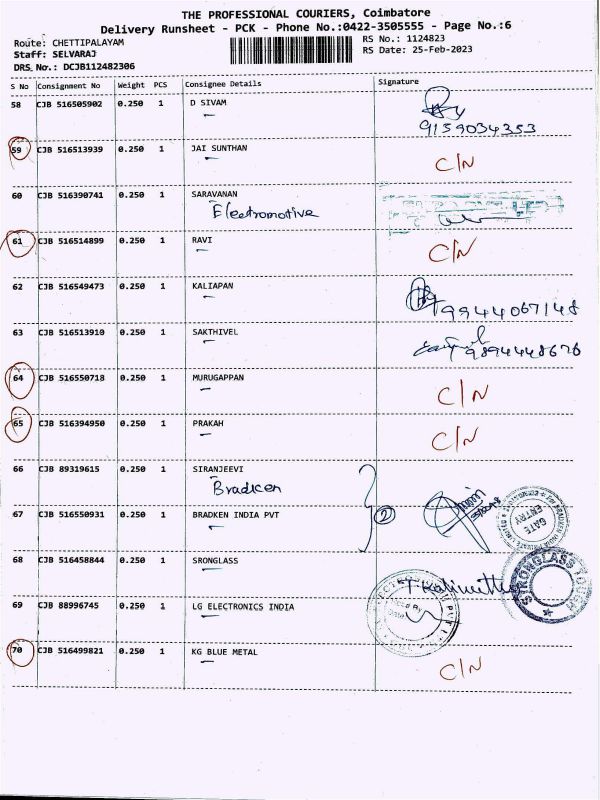 THE PROFESSIONAL COURIERS, Coimbatore
Delivery Runsheet - PCK - Phone No.:0422-3505555 - Page No.:6
Route: CHETTIPALAYAM RS No.: 1124823
Staff: SELVARAJ RS Date: 25-Feb-2023
DRS. No.: DCJB112482306
S No Consignment No Weight PCS Consignee Details Signature
58 CJB 516505902 0.250 1 D SIVAM
9159034353
59 CJB 516513939 0.250 1 JAI SUNTHAN C/N
60 CJB 516390741 0.250 1 SARAVANAN
Electromotive
61 CJB 516514899 0.250 1 RAVI C/N
62 CJB 516549473 0.250 1 KALIAPAN
9944067148
63 CJB 516513910 0.250 1 SAKTHIVEL
9894448676
64 CJB 516550718 0.250 1 MURUGAPPAN C/N
65 CJB 516394950 0.250 1 PRAKAH C/N
66 CJB 89319615 0.250 1 SIRANJEEVI
Bradken
67 CJB 516550931 0.250 1 BRADKEN INDIA PVT 2
GATE ENTRY
68 CJB 516458844 0.250 1 SRONGLASS
STRONGLASS TOUGH
69 CJB 88996745 0.250 1 LG ELECTRONICS INDIA
70 CJB 516499821 0.250 1 KG BLUE METAL C/N